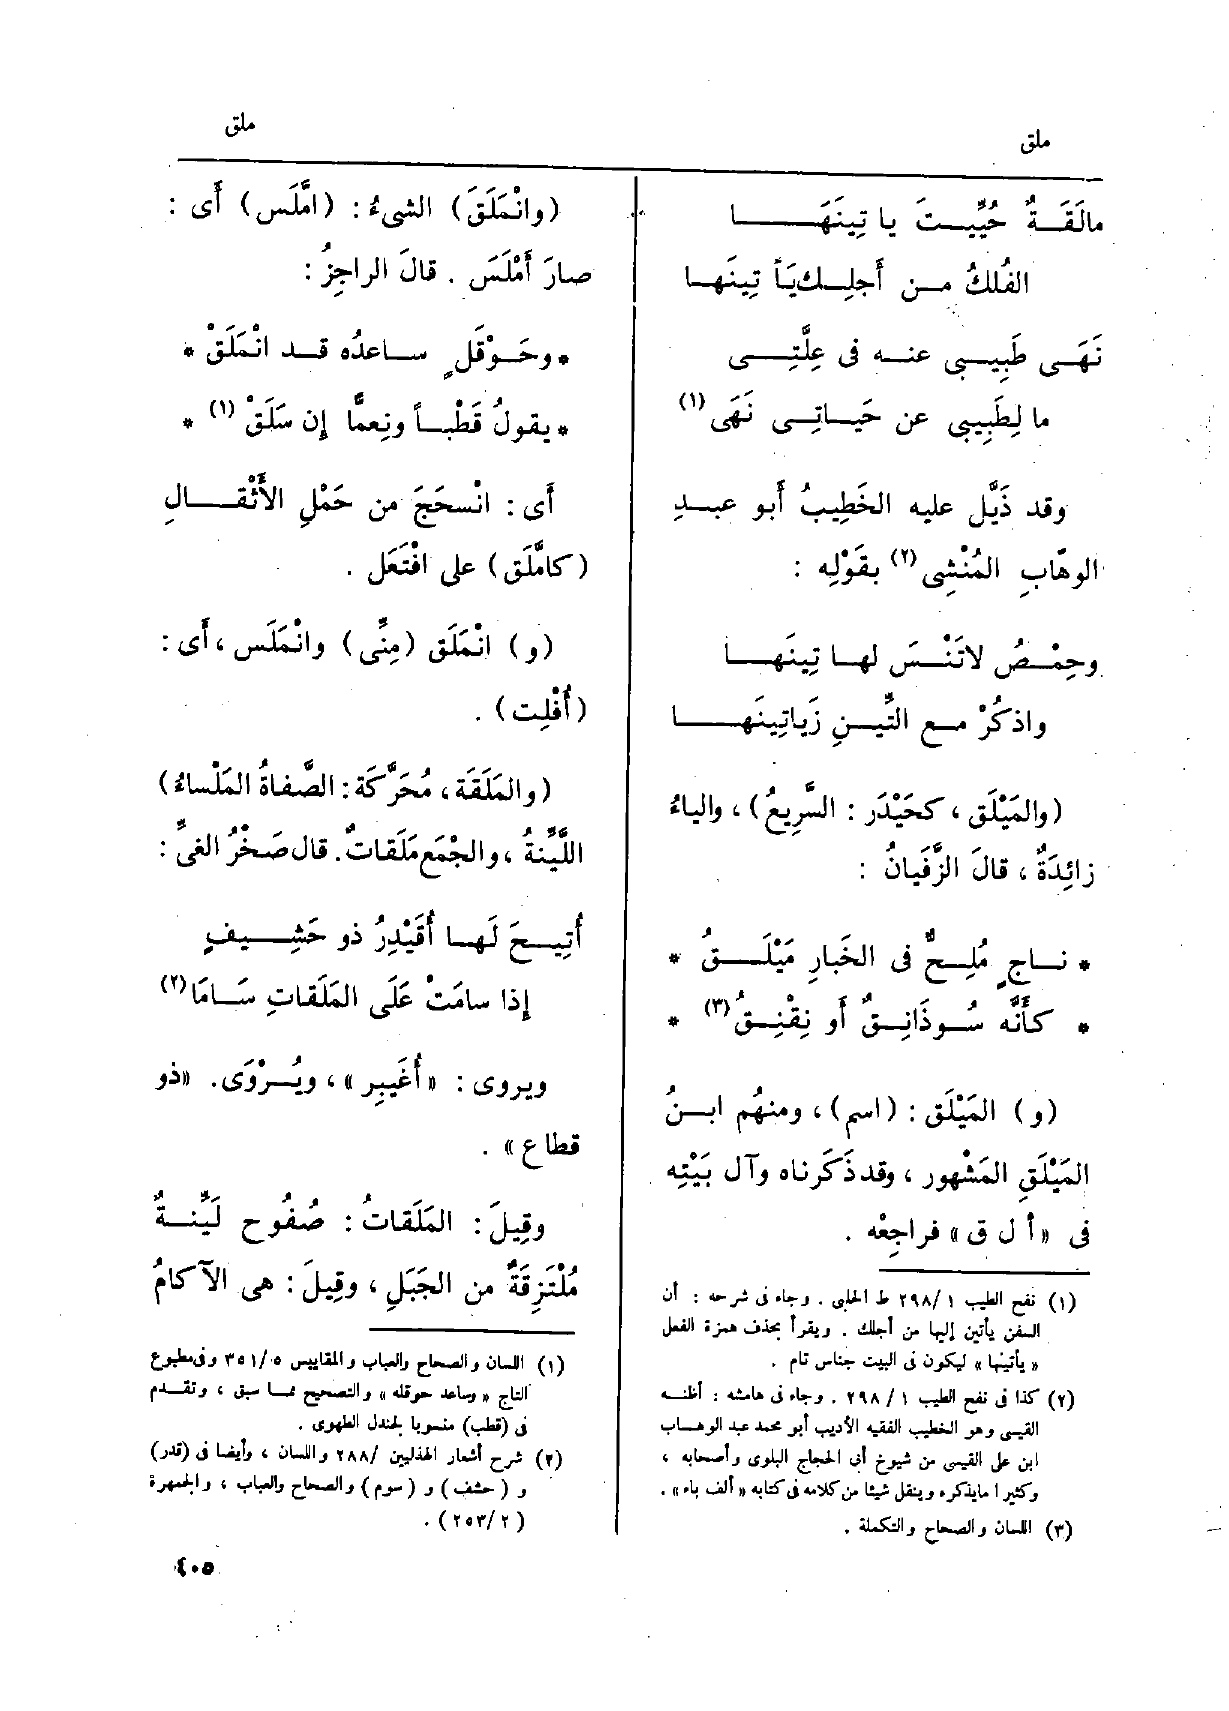 ملق
ملق
مالَقَـةٌ حُيِّيـتَ يا تِينَهَـــا
الفُلكُ مـن أَجلِـك يَأ تِينَهـا
نَهَـى طَبِيـبـى عنـه فى عِلَّتِـى
ما لِطَبِيبى عن حَيـاتِـى نَهَى (١)
وقد ذَيَّل عليه الخَطِيبُ أَبو عبـدِ
الوهّابِ المُنْشِى (٢) بقَوْلِه :
وحِمْـصُ لاتَنْـسَ لهـا تِينَهــا
واذكُرْ مـع التِّيـنِ زَياتِينَهــا
(والمَيْلَق ، كحَيْدَر : السَّرِيعُ) ، والياءُ
زائِدَةٌ ، قالَ الزَّفَيانُ :
* نـاجٍ مُلِـحٌّ فى الخَبارِ مَيْلَـقُ *
* كأَنَّه سُـوذَانِـقٌ أَو نِقْنِـقُ (٣) *
(و) المَيْلَق : (اسم) ، ومنهُم ابـنُ
المَيْلَقِ المَشْهور ، وقد ذَكَرناه وآل بَيْتِه
فى «أ ل ق» فراجِعْه .
(١) نفح الطيب ١ /٢٩٨ ط الحلبى . وجاء فى شرحه : أن
السفن يأتين إليها من أجلك . ويقرأ بحذف همزة الفعل
« يأتينها » ليكون فى البيت جناس تام .
(٢) كذا فى نفح الطيب ١ / ٢٩٨ . وجاء فى هامشه : أظنـه
القيسى وهو الخطيب الفقيه الأديب أبو محمد عبد الوهـاب
ابن على القيسى من شيوخ أبى الحجاج البلوى وأصحابه ،
وكثير ا مايذكره وينقل شيئا من كلامه فى كتابه « ألف باء » .
(٣) اللسان والصحاح والتكملة .
(وانْمَلَقَ) الشىءُ : (امَّلَس) أَى :
صارَ أَمْلَسَ . قالَ الراجِزُ :
* وحَـوْقَلٍ ساعدُه قـد انْمَلَقْ *
* يقولُ قَطْبـاً ونِعمَّا إن سَلَقْ (١) *
أَى : انْسحَجَ من حَمْلِ الأَثْقــالِ
(كامَّلَق) على افْتَعَل .
(و) انْمَلَق (مِنِّى) وانْمَلَس ، أَى :
(أُفْلِت) .
(والمَلَقَة ، مُحَرَّكَة : الصَّفاةُ المَلْساءُ)
اللَّيِّنةُ ، والجْمَع مَلَقاتٌ . قال صَخْرُ الغىِّ :
أُتِيـحَ لَهـا أُقَيْدِرُ ذو حَشِـيفٍ
إذا سامَتْ عَلَى المَلَقاتِ سَـامَا (٢)
ويروى : «أُغَيبِر» ، ويُـرْوَى . «ذو
قطاع» .
وقِيلَ : المَلَقاتُ : صُفُوح لَيِّنـةٌ
مُلْتَزِقَةٌ من الجَبَلِ ، وقِيلَ : هى الآكامُ
(١) اللسان والصحاح والعباب والمقاييس ٥ /٣٥١ وفى مطبوع
التاج « وساعد حوقله » والتصحيح مما سبق ، وتقـدم
فى (قطب) منسوبا لجندل الطهوى .
(٢) شرح أشعار الهذليين /٢٨٨ واللسان ، وأيضا فى (قدر)
و (حشف) و (سوم) والصحاح والعباب ، والجمهرة
(٢ /٢٥٣) .
٤٠٥